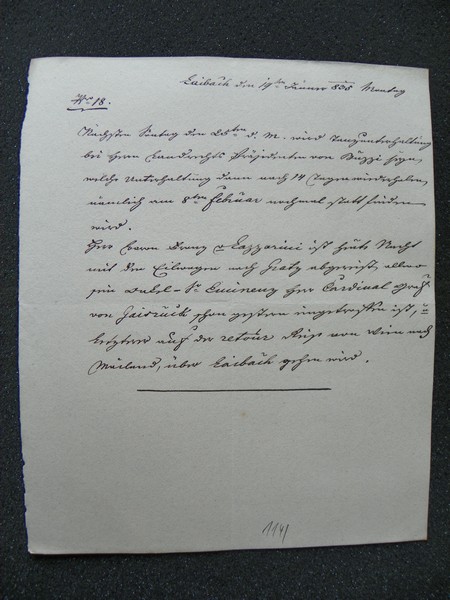 Laibach den 19ten Jänner 835 Montag
No 18.
Nächsten Sontag den 25ten d. M. wird Tanzunterhaltung
bei Herrn Landrechts Präsidenten von Buzzi seyn,
welche Unterhaltung dann nach 14 Tagen wiederholen,
nämlich am 8ten Februar nochmal statt finden
wird.
Herr Baron Franz v Lazzarini ist heute Nacht
mit den Eilwagen nach Gratz abgereist, allwo
sein Onkel Sr Eminenz Herr Cardinal Graf
von Gaisruck schon gestern eingetroffen ist, u
letzterer auf der retour Reise von Wien nach
Mailand, über Laibach gehen wird.
1141